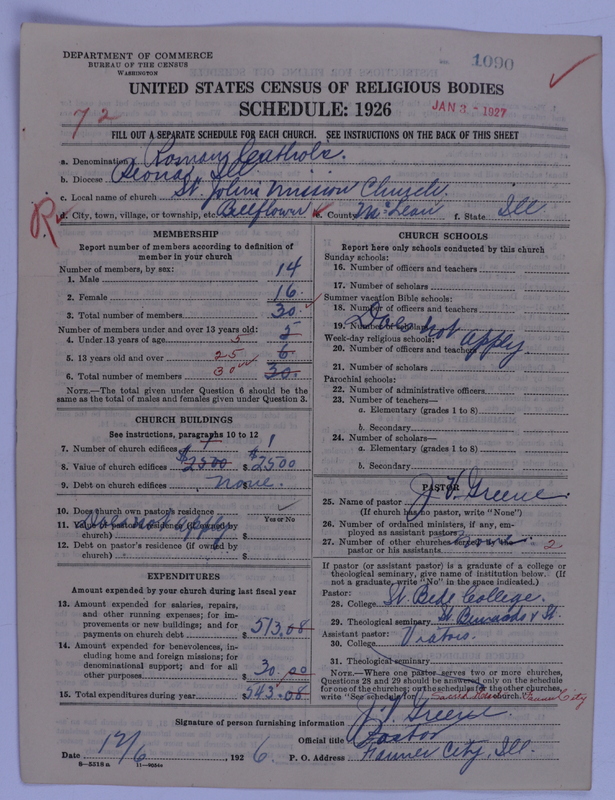 1090
DEPARTMENT OF COMMERCE
BUREAU OF THE CENSUS
WASHINGTON
UNITED STATES CENSUS OF RELIGIOUS BODIES
SCHEDULE: 1926
JAN 3 - 1927
72
FILL OUT A SEPARATE SCHEDULE FOR EACH CHURCH. SEE INSTRUCTIONS ON THE BACK OF THIS SHEET
a. Denomination Roman Catholic.
b. Diocese Peoria, Ill
c. Local name of church St. Johns Mission Church
R
d. City, town, village, or township, etc. Bellflower e. County McLean f. State Ill
MEMBERSHIP
Report number of members according to definition of member in your church
Number of members, by sex:
1. Male 14
2. Female 16.
3. Total number of members 30.
Number of members under and over 13 years old:
4. Under 13 years of age 5 5
5. 13 years old and over 25 6
6. Total number of members 30 30.
NOTE.—The total given under Question 6 should be the same as the total of males and females given under Question 3.
CHURCH BUILDINGS
See instructions, paragraphs 10 to 12
7. Number of church edifices 1 1
8. Value of church edifices $2500 $2500
9. Debt on church edifices none.
10. Does church own pastor's residence
Yes or No
11. Value of pastor's residence (if owned by church) $
Does not apply
12. Debt on pastor's residence (if owned by church) $
EXPENDITURES
Amount expended by your church during last fiscal year
13. Amount expended for salaries, repairs, and other running expenses; for improvements or new buildings; and for payments on church debt $ 513.08
14. Amount expended for benevolences, including home and foreign missions; for denominational support; and for all other purposes $ 30.00
15. Total expenditures during year $ 543.08
CHURCH SCHOOLS
Report here only schools conducted by this church
Sunday schools:
16. Number of officers and teachers
17. Number of scholars
Summer vacation Bible schools:
18. Number of officers and teachers
19. Number of scholars
Does not apply
Week-day religious schools:
20. Number of officers and teachers
21. Number of scholars
Parochial schools:
22. Number of administrative officers
23. Number of teachers—
a. Elementary (grades 1 to 8)
b. Secondary
24. Number of scholars—
a. Elementary (grades 1 to 8)
b. Secondary
PASTOR
25. Name of pastor J. V. Greene.
(If church has no pastor, write "None")
26. Number of ordained ministers, if any, employed as assistant pastors
27. Number of other churches served by pastor or his assistants 2
If pastor (or assistant pastor) is a graduate of a college or theological seminary, give name of institution below. (If not a graduate, write "No" in the space indicated.)
Pastor:
28. College St. Bede College.
29. Theological seminary St. Bernards & St.
Assistant pastor: Viators.
30. College
31. Theological seminary
NOTE.—Where one pastor serves two or more churches, Questions 28 and 29 should be answered only on the schedule for one of the churches; on the schedules for the other churches, write "See schedule for Sacred Heart church." Farmer City
Signature of person furnishing information J. V. Greene.
Official title Pastor
Date 12/6, 1926. P. O. Address Farmer City, Ill.
8-5518 a